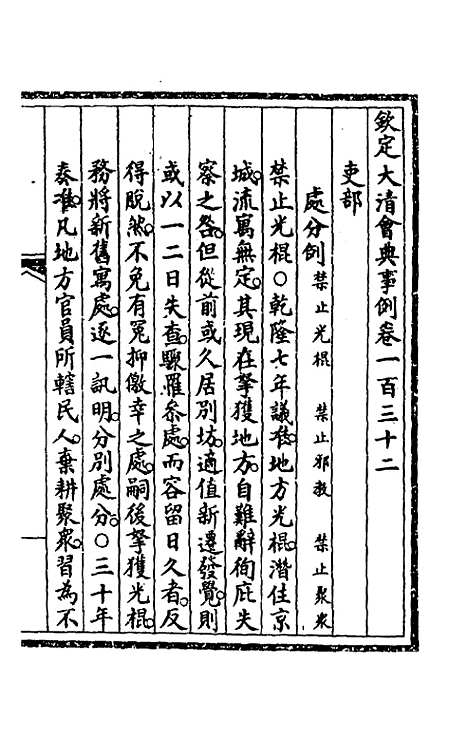 欽定大清會典事例卷一百三十二
吏部
處分例 禁止光棍 禁止邪教 禁止聚衆
禁止光棍○乾隆七年議准。地方光棍。潛住京
城。流寓無定。其現在拏獲地方。自難辭徇庇失
察之咎。但從前或久居別坊。適值新遷發覺。則
或以一二日失查。驟罹參處。而容留日久者。反
得脫然。不免有冤抑儌幸之處。嗣後拏獲光棍。
務將新舊寓處。逐一訊明。分別處分。○三十年
奏准。凡地方官員所轄民人。棄耕聚衆。習為不